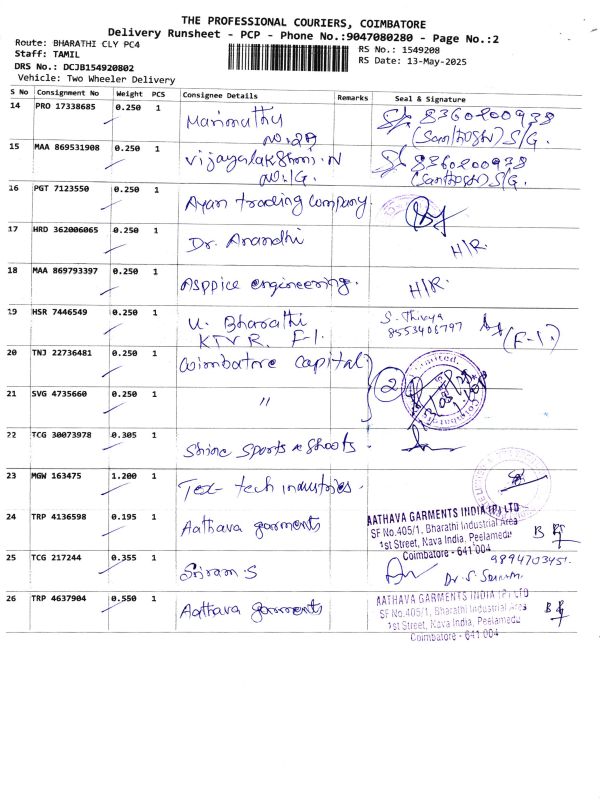 THE PROFESSIONAL COURIERS, COIMBATORE
Delivery Runsheet - PCP - Phone No.:9047080280 - Page No.:2
Route: BHARATHI CLY PC4
RS No.: 1549208
Staff: TAMIL
RS Date: 13-May-2025
DRS No.: DCJB154920802
Vehicle: Two Wheeler Delivery
S No Consignment No Weight PCS Consignee Details Remarks Seal & Signature
14 PRO 17338685 0.250 1 Manimathy 8360200938
No:2A (Santhosh) S/G.
15 MAA 869531908 0.250 1 Vijayalakshmi. N 8360200938
No:1G. (Santhosh) S/G.
16 PGT 7123550 0.250 1 Ayan trading company.
17 HRD 362006065 0.250 1 Dr. Anandhi H/R.
18 MAA 869793397 0.250 1 Asppice engineering. H/R.
19 HSR 7446549 0.250 1 U. Bharathi S. Thivya
KTVR. F-1. 8553406797 (F-1.)
20 TNJ 22736481 0.250 1 Coimbatore Capital 2
21 SVG 4735660 0.250 1 "
22 TCG 30073978 0.305 1 Shine Sports & Shoots.
23 MGW 163475 1.200 1 Tex-tech industries.
24 TRP 4136598 0.195 1 Aathava garments
AATHAVA GARMENTS INDIA (P) LTD
SF No.405/1, Bharathi Industrial Area
1st Street, Nava India, Peelamedu
Coimbatore - 641 004
25 TCG 217244 0.355 1 Sriram. S 9894703451.
26 TRP 4637904 0.550 1 Aathava garments
AATHAVA GARMENTS INDIA (P) LTD
SF No.405/1, Bharathi Industrial Area
1st Street, Nava India, Peelamedu
Coimbatore - 641 004